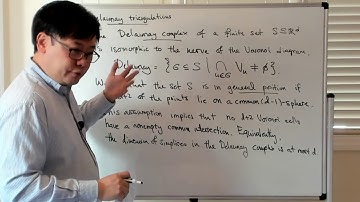 Delaunay triangulations
Delaunay complex of a finite set S⊆ℝᵈ
is isomorphic to the nerve of the Voronoi diagram
Delaunay = {σ⊆S | ⋂ Vᵤ ≠ ∅}.
u∈σ
that the set S is in general position if
of the points lie on a common (d-1)-sphere.
This assumption implies that no d+2 Voronoi cells
have a nonempty common intersection. Equivalently,
the dimension of simplices in the Delaunay complex is at most d.